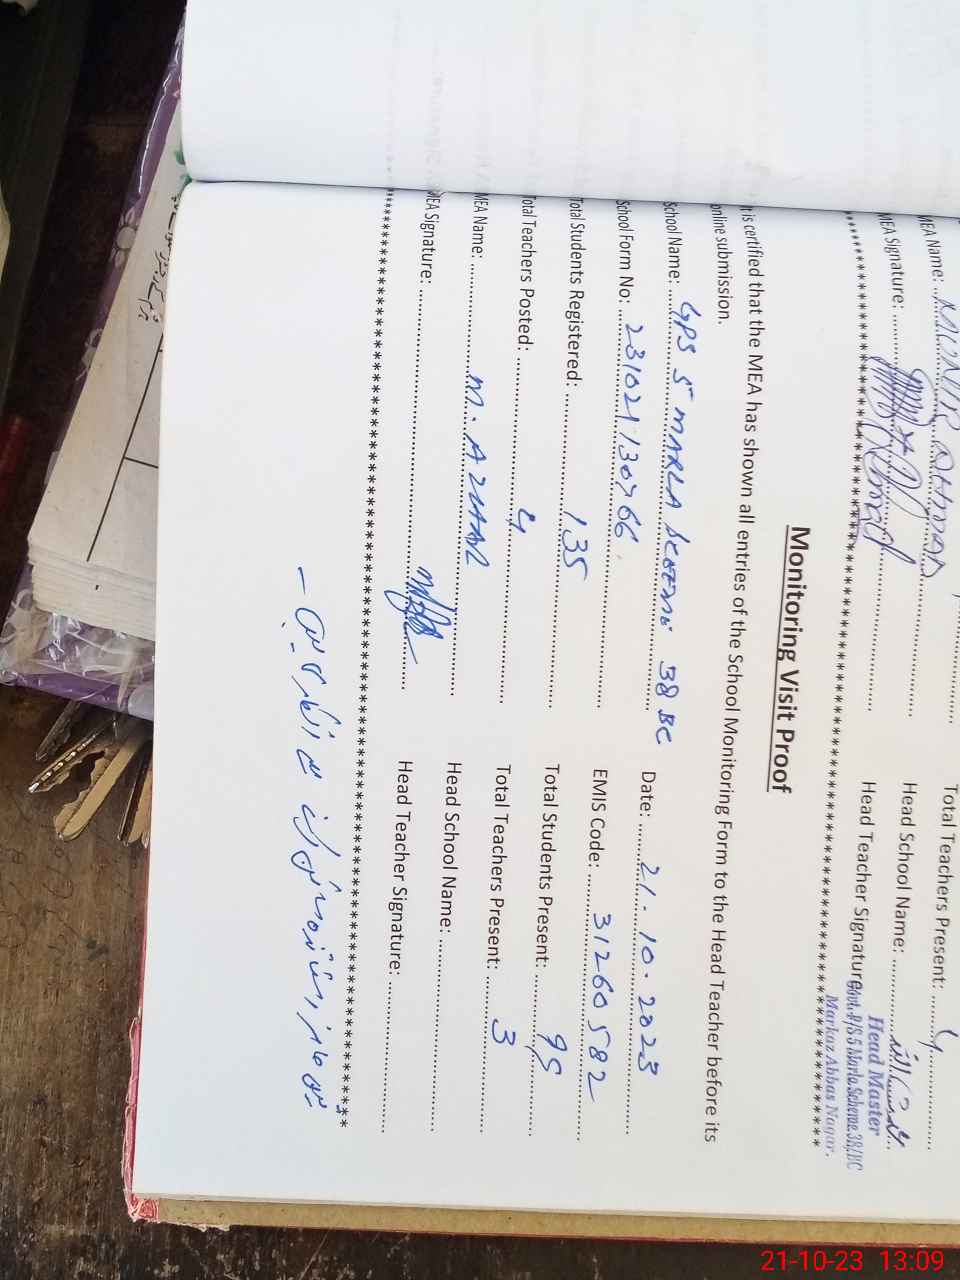 MEA Name: MUNIR AHMAD
Total Teachers Present: 4
MEA Signature:
Head School Name:
Head Teacher Signature:
Head Master
Govt. P/S 5 Marla Scheme 38/BC
Markaz Abbas Nagar.
Monitoring Visit Proof
It is certified that the MEA has shown all entries of the School Monitoring Form to the Head Teacher before its
online submission.
School Name: GPS 5 MARLA 38 BC Date: 21.10.2023
School Form No: EMIS Code: 31260582
Total Students Registered: 135 Total Students Present: 95
Total Teachers Posted: 4 Total Teachers Present: 3
MEA Name: M. AZHAR Head School Name:
MEA Signature: Head Teacher Signature:
21-10-23 13:09